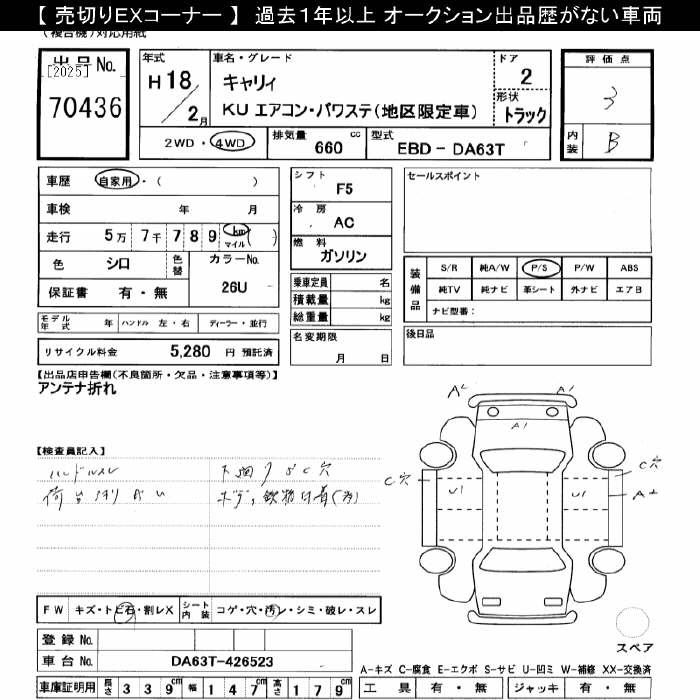 【 売切りEXコーナー 】 過去１年以上 オークション出品歴がない車両
(複合機)対応用紙
出品No.
[2025]
70436
年式
H18/2月
車名・グレード
キャリィ
KU エアコン・パワステ(地区限定車)
ドア
2
形状
トラック
評価点
3
内装
B
2WD・4WD
排気量
660 cc
型式
EBD - DA63T
車歴 自家用・( )
車検 年 月
走行 5万 7千 7 8 9 km マイル ( )
色 シロ
色替
カラーNo.
26U
保証書 有・無
シフト
F5
冷房
AC
燃料
ガソリン
乗車定員 名
積載量 kg
総重量 kg
セールスポイント
装備品
S/R 純A/W P/S P/W ABS
純TV 純ナビ 革シート 外ナビ エアB
ナビ型番：
モデル年式 年 ハンドル 左・右 ディーラー・並行
リサイクル料金 5,280 円 預託済
名変期限
月 日
後日品
【出品店申告欄(不良箇所・欠品・注意事項等)】
アンテナ折れ
【検査員記入】
ハンドルスレ
下廻りSC穴
A2 A1
A1
C穴 U1 U1 C穴
FW キズ・トビ石・割レX
シート内装 コゲ・穴・汚レ・シミ・破レ・スレ
登録No.
車台No. DA63T-426523
車庫証明用 長さ 339cm 幅 147cm 高さ 179cm
スペア
A-キズ C-腐食 E-エクボ S-サビ U-凹ミ W-補修 XX-交換済
工具 有・無 ジャッキ 有・無